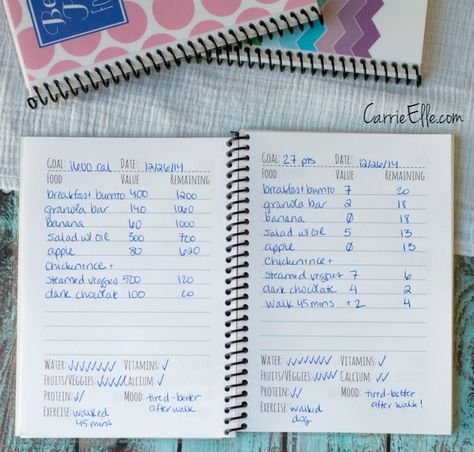 CarrieElle.com
GOAL: 1600 cal DATE: 12/26/14
FOOD VALUE REMAINING
breakfast burrito 400 1200
granola bar 140 1060
banana 60 1000
salad w/ oil 300 700
apple 80 620
chicken, rice +
steamed veggies 500 120
dark chocolate 100 20
WATER: ✓✓✓✓✓✓✓ VITAMINS: ✓
FRUITS/VEGGIES: ✓✓✓✓ CALCIUM: ✓
PROTEIN: ✓✓ MOOD: tired-better
EXERCISE: walked after walk
45 mins
GOAL: 27 pts DATE: 12/26/14
FOOD VALUE REMAINING
breakfast burrito 7 20
granola bar 2 18
banana 0 18
salad w/ oil 5 13
apple 0 13
chicken, rice +
steamed veggies 7 6
dark chocolate 4 2
walk 45 mins +2 4
WATER: ✓✓✓✓✓✓✓ VITAMINS: ✓
FRUITS/VEGGIES: ✓✓✓✓ CALCIUM: ✓
PROTEIN: ✓✓ MOOD: tired-better
EXERCISE: walked after walk!
dog